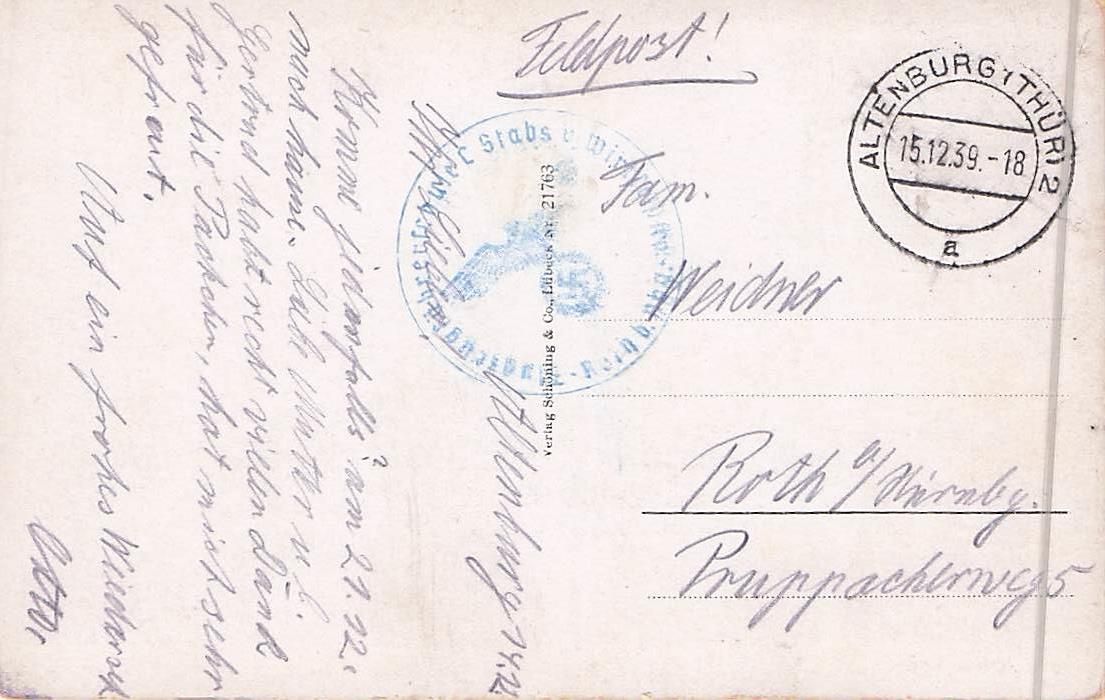 Feldpost!
ALTENBURG (THÜR) 2
15.12.39.-18
a
Stabs
Fam.
Weidner
Roth a/Nürnbg.
Pruppacherweg 5
Verlag Schöning & Co., Lübeck Nr. 21763
Altenburg 14.12.
Komme jedenfalls am 21.12.
nach hause. Liebe Mutter u.
Gertrud habt recht vielen Dank
für die Päckchen, hat mich sehr
gefreut.
Auf ein frohes Wiederseh